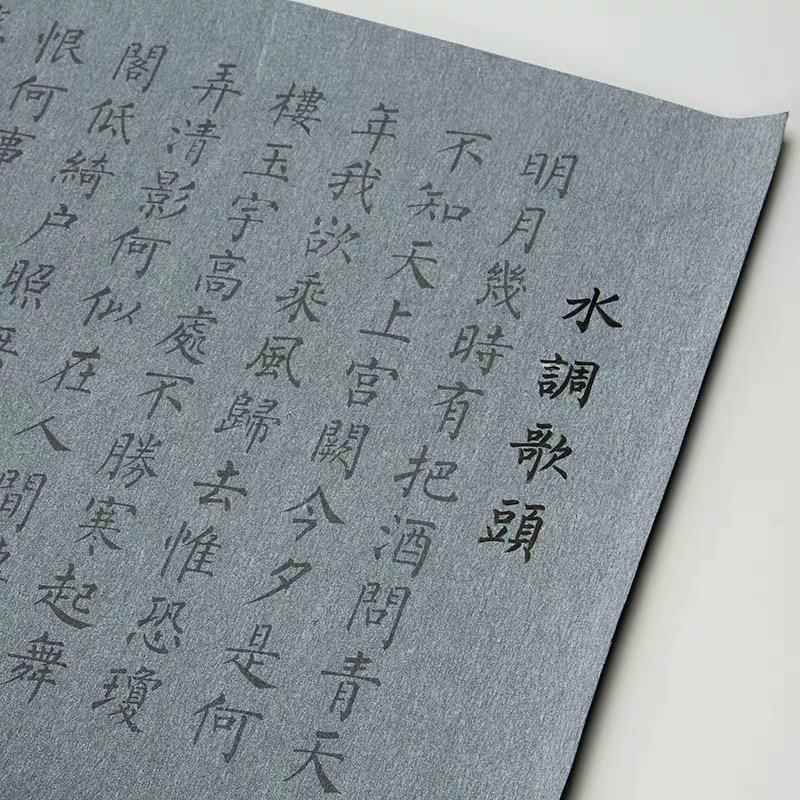 水調歌頭
明月幾時有把酒問青天
不知天上宮闕今夕是何
年我欲乘風歸去惟恐瓊
樓玉宇高處不勝寒起舞
弄清影何似在人間
閣低綺户照
恨何事